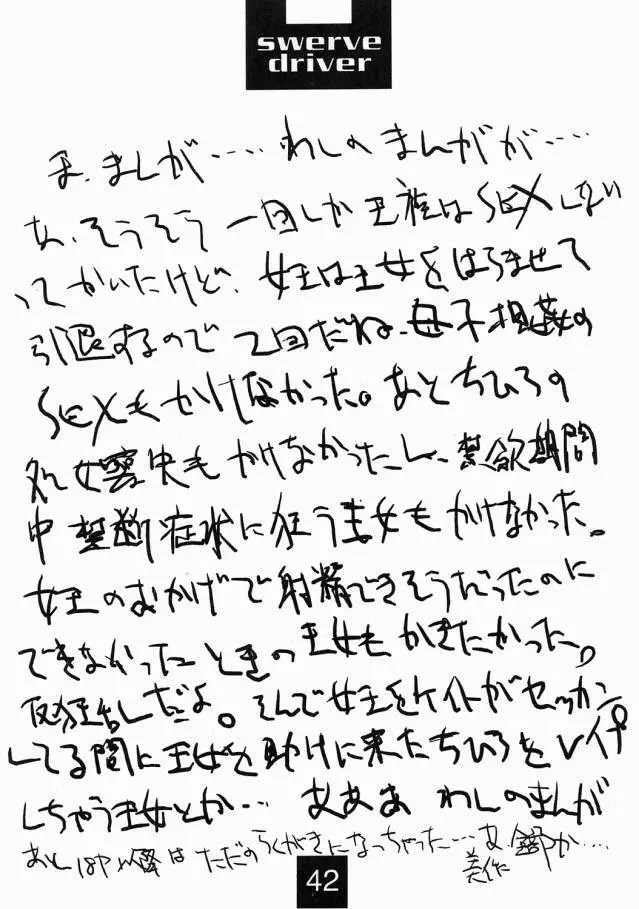 swerve
driver
ま、まんが‥‥わしのまんがが‥‥
あ、そうそう一回しか王族はSEXしない
ってかいたけど、女王は王女をはらませて
引退するので2回だね、母子相姦の
SEXもかけなかった。あとちひろの
処女喪失もかけなかったし、禁欲期間
中禁断症状に狂う王女もかけなかった。
女王のおかげで射精できそうだったのに
できなかったときの王女もかきたかった。
半狂乱だよ。そんで女王をケイトがセッカン
してる間に王女を助けに来たちひろをレイプ
しちゃう王女とか… あああ わしのまんが
あと 以降はただのらくがきになっちゃった…あ、
42